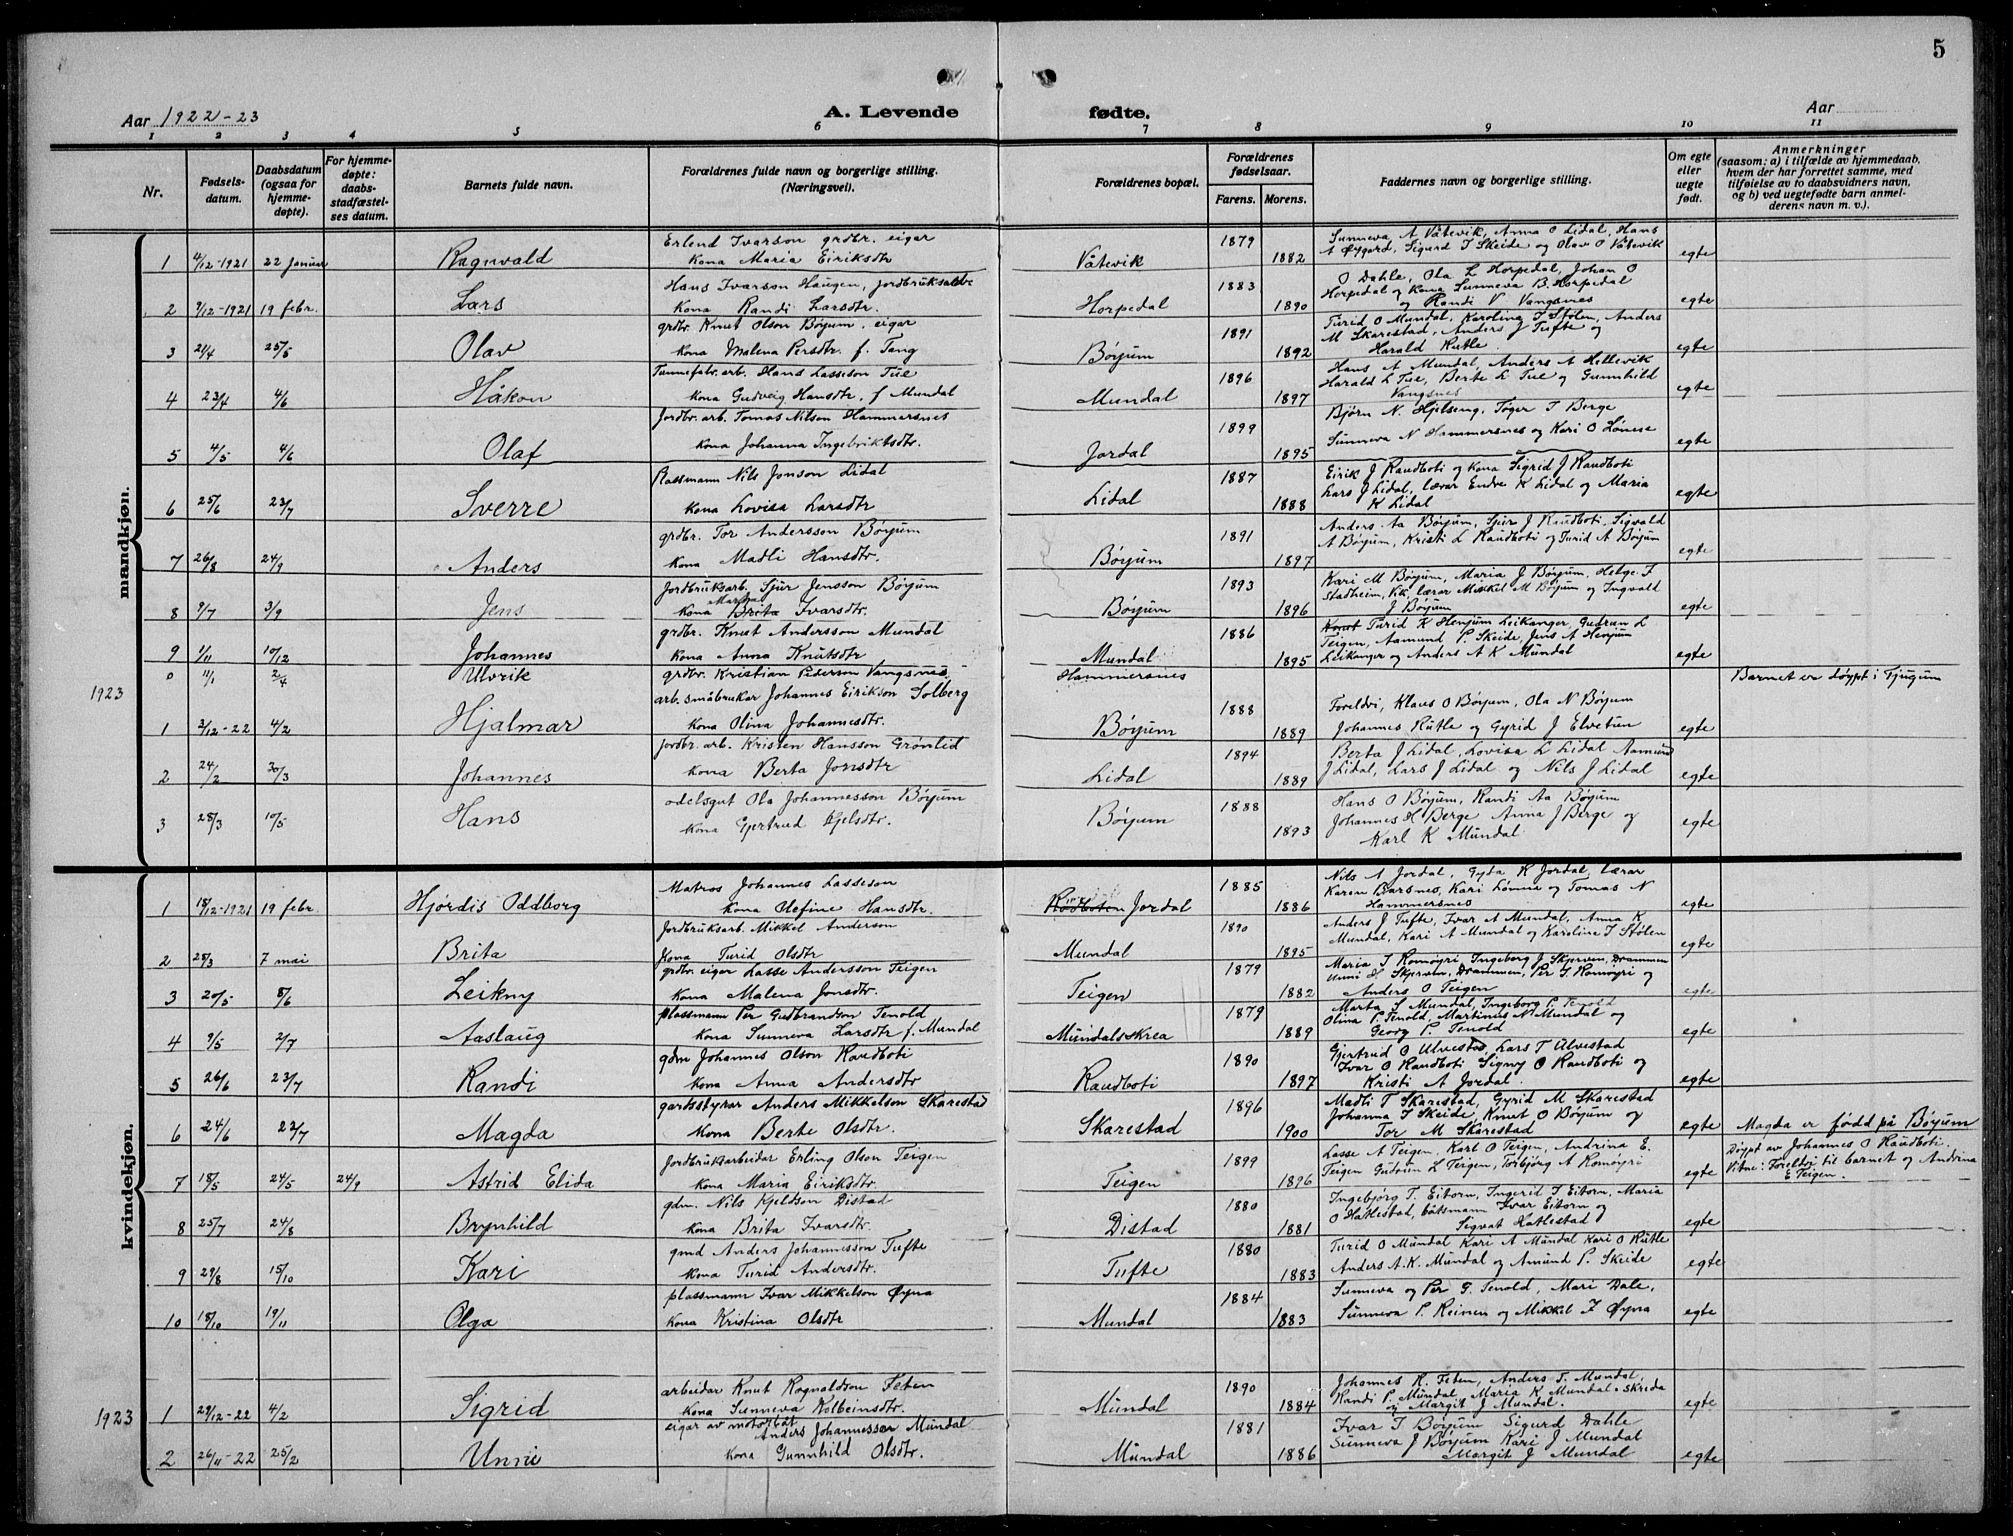 5
Aar 1922-23
A. Levende
fødte.
Aar
1 2 3 4 5 6 7 8 9 10 11
Nr.
Fødsels-
datum.
Daabsdatum
(ogsaa for
hjemme-
døpte).
For hjemme-
døpte:
daabs-
stadfæstel-
ses datum.
Barnets fulde navn.
Forældrenes fulde navn og borgerlige stilling.
(Næringsvei).
Forældrenes bopæl.
Forældrenes
fødselsaar.
Farens. Morens.
Faddernes navn og borgerlige stilling.
Om egte
eller
uegte
født.
Anmerkninger
(saasom: a) i tilfælde av hjemmedaab,
hvem der har forrettet samme, med
tilføielse av to daabsvidners navn,
og b) ved uegtefødte barn anmel-
derens navn m. v.).
mandkjøn.
Erlend Ivarson grdbr. eigar 1879 Sunneva A Våtevik, Anna O Lidal, Hans
1 4/12-1921 22 Januar Ragnvald Kona Maria Eiriksdtr Våtevik 1882 A Øygard, Sigurd I Skeide og Olav O Våtevik egte
Hans Ivarson Haugen, jordbruksarb. 1883 O Dahle, Ola L Horpedal, Johan O
2 7/12-1921 19 febr. Lars Kona Randi Larsdtr. Horpedal 1890 Horpedal og Kona Sunneva B. Horpedal egte
og Randi V Vangsnes
grdbr. Knut Olson Bøyum, eigar 1891 Turid O Mundal, Karolina I Stølen, Anders
3 21/4 25/5 Olav Kona Malena Persdtr. f. Tang Bøyum 1892 M Skarestad, Anders J Tufte og egte
Harald Rutle.
Tunnefabr. arb. Hans Lasseson Tue 1896 Hans A Mundal, Anders A Hellevik
4 23/4 4/6 Håkon Kona Gudveig Hansdtr, f Mundal Mundal 1897 Harald L Tue, Berte L Tue og Gunnhild egte
Vangsnes
Jordbr. arb. Tomas Nilson Hammersnes 1899 Bjørn N. Hjelseng, Tøger T Berge
5 4/5 4/6 Olaf Kona Johanna Ingebriktsdtr. Jordal 1895 Sunneva N Hammersnes og Kari O Lønne egte
Plassmann Nils Jonson Lidal 1887 Eirik J Raudboti og Kona Sigrid J Raudboti
6 25/6 23/7 Sverre Kona Lovisa Larsdtr Lidal 1888 Lars J Lidal, lærar Endre K Lidal og Maria egte
K Lidal
grdbr. Tor Andersson Bøyum 1891 Anders Aa Bøyum, Sjur J Raudboti, Sigvald
7 26/8 24/9 Anders Kona Madli Hansdtr. Bøyum 1897 A Bøyum, Kristi L Raudboti og Turid A Bøyum egte
Jordbruksarb. Sjur Jensson Bøyum 1893 Kari M Bøyum, Maria J Bøyum, Helge I
8 9/7 3/9 Jens Kona Marta Brita Ivarsdtr. Bøyum 1896 Stadheim, Kk. lærar Mikkel M Bøyum og Ingvald egte
J Bøyum
grdbr. Knut Andersson Mundal 1886 Knut Turid K Henjum Leikanger, Gudrun L
9 1/11 10/12 Johannes Kona Anna Knutsdtr Mundal 1895 Teigen, Aamund P. Skeide, Jens A Henjum egte
Leikanger og Anders A K Mundal
1923 0 11/1 2/4 Ulvrik grdbr. Kristian Pederson Vangsnes Hammersnes Barnet er døypt i Tjugum
arb. småbrukar Johannes Eirikson Solberg 1888 Foreldri, Klaus O Bøyum, Ola N Bøyum
1 3/12-22 4/2 Hjalmar Kona Olina Johannesdtr. Bøyum 1889 Johannes Rutle og Gyrid J Elvetun egte
jordbr. arb. Kristen Hansson Grønlid 1894 Berta J Lidal, Lovisa L Lidal Aamund
2 24/2 30/3 Johannes Kona Berta Jonsdtr Lidal 1889 J Lidal, Lars J Lidal og Nils J Lidal egte
odelsgut Ola Johannesson Bøyum 1888 Hans O Bøyum, Randi Aa Bøyum
3 28/3 10/5 Hans Kona Gjertrud Kjelsdtr. Bøyum 1893 Johannes H Berge Anna J Berge og egte
Karl K Mundal
kvindekjøn.
Matros Johannes Lasseson 1885 Nils A Jordal, Gyda K Jordal, lærar
1 18/12-1921 19 febr. Hjørdis Oddborg Kona Olefine Hansdtr. Jordal 1886 Karen Barsnes, Kari Lønne og Tomas N egte
Hammersnes
Jordbruksarb. Mikkel Anderson 1890 Anders J Tufte, Ivar A Mundal, Anna K
2 28/3 7 mai Brita Kona Turid Olsdtr Mundal 1895 Mundal, Kari A Mundal og Karoline I Stølen egte
grdbr. eigar Lasse Andersson Teigen 1879 Maria I Romøyri, Ingeborg J Skyrven, Drammen
3 20/5 8/6 Leikny Kona Malena Jonsdtr. Teigen 1882 Unni H Skyrven, Drammen, Per G. Romøyri og egte
Anders O Teigen
plassmann Per Gudbrandson Tenold 1879 Marta S Mundal, Ingeborg P. Tenold
4 9/5 2/7 Aaslaug Kona Sunneva Harsdtr f. Mundal Mundalsskrea 1889 Olina P. Tenold, Martinus N Mundal og egte
Georg P. Tenold
gdm Johannes Olson Raudboti 1890 Gjertrud O Ulvestad, Lars T Ulvestad
5 26/6 23/7 Randi Kona Anna Andersdtr Raudboti 1897 Ivar O Raudboti Signy O Raudboti og egte
Kristi A Jordal.
gardsstyrar Anders Mikkelson Skarestad 1896 Madli T Skarestad, Gyrid M Skarestad
6 24/6 23/7 Magda Kona Berte Olsdtr. Skarestad 1900 Johanna I Skeide, Knut O Bøyum og egte Magda er fødd på Bøyum
Tor M Skarestad
Jordbruksarbeidar Erling Olson Teigen 1899 Lasse A Teigen, Karl O Teigen, Andrina E. Døypt av Johannes O Raudboti.
7 18/5 24/5 24/9 Astrid Elida Kona Maria Eiriksdtr Teigen 1896 Teigen Gudrun L Teigen, Torbjørg A Romøyri egte Vitne: Foreldri til barnet og Andrina
E Teigen.
gdm. Nils Kjeldson Distad 1880 Ingebjørg T. Eitorn, Ingerid I Eitorn, Maria
8 25/7 24/8 Brynhild Kona Brita Ivarsdtr. Distad 1881 O Hatlestad, båtsmann Ivar Eitorn og egte
Sigvat Hatlestad
gmd Anders Johannesson Tufte 1880 Turid O Mundal Kari A Mundal Kari O Rutle
9 29/8 15/10 Kari Kona Turid Andersdtr. Tufte 1883 Anders A.K. Mundal og Amund P. Skeide egte
plassmann Ivar Mikkelson Øyna 1884 Sunneva og Per G. Tenold, Mari Dale,
10 18/10 19/11 Olga Kona Kristina Olsdtr Mundal 1883 Sunneva P. Reinen og Mikkel I Øyna egte
arbeidar Knut Ragnaldson Feten 1890 Johannes R. Feten, Anders T. Mundal,
1923 1 29/12-22 4/2 Sigrid Kona Sunneva Kolbeinsdtr. Mundal 1884 Randi P. Mundal, Maria K Mundal-skreda egte
og Margit J Mundal.
eigar av motorbåt Anders Johannesson Mundal 1881 Ivar T Bøyum Sigurd Dahle
2 26/11-22 25/2 Unni Kona Gunnhild Olsdtr. Mundal 1886 Sunneva J Bøyum Kari J Mundal egte
Margit J Mundal